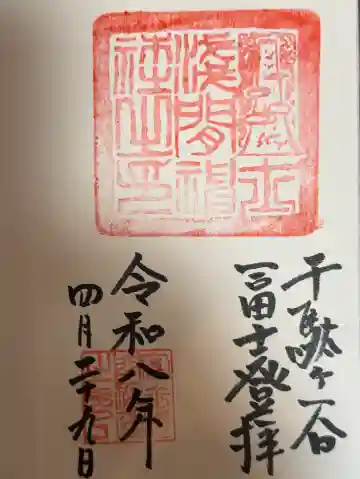 冨士
浅間神
社之印
千駄ヶ谷
冨士登拝
令和八年
四月二十九日